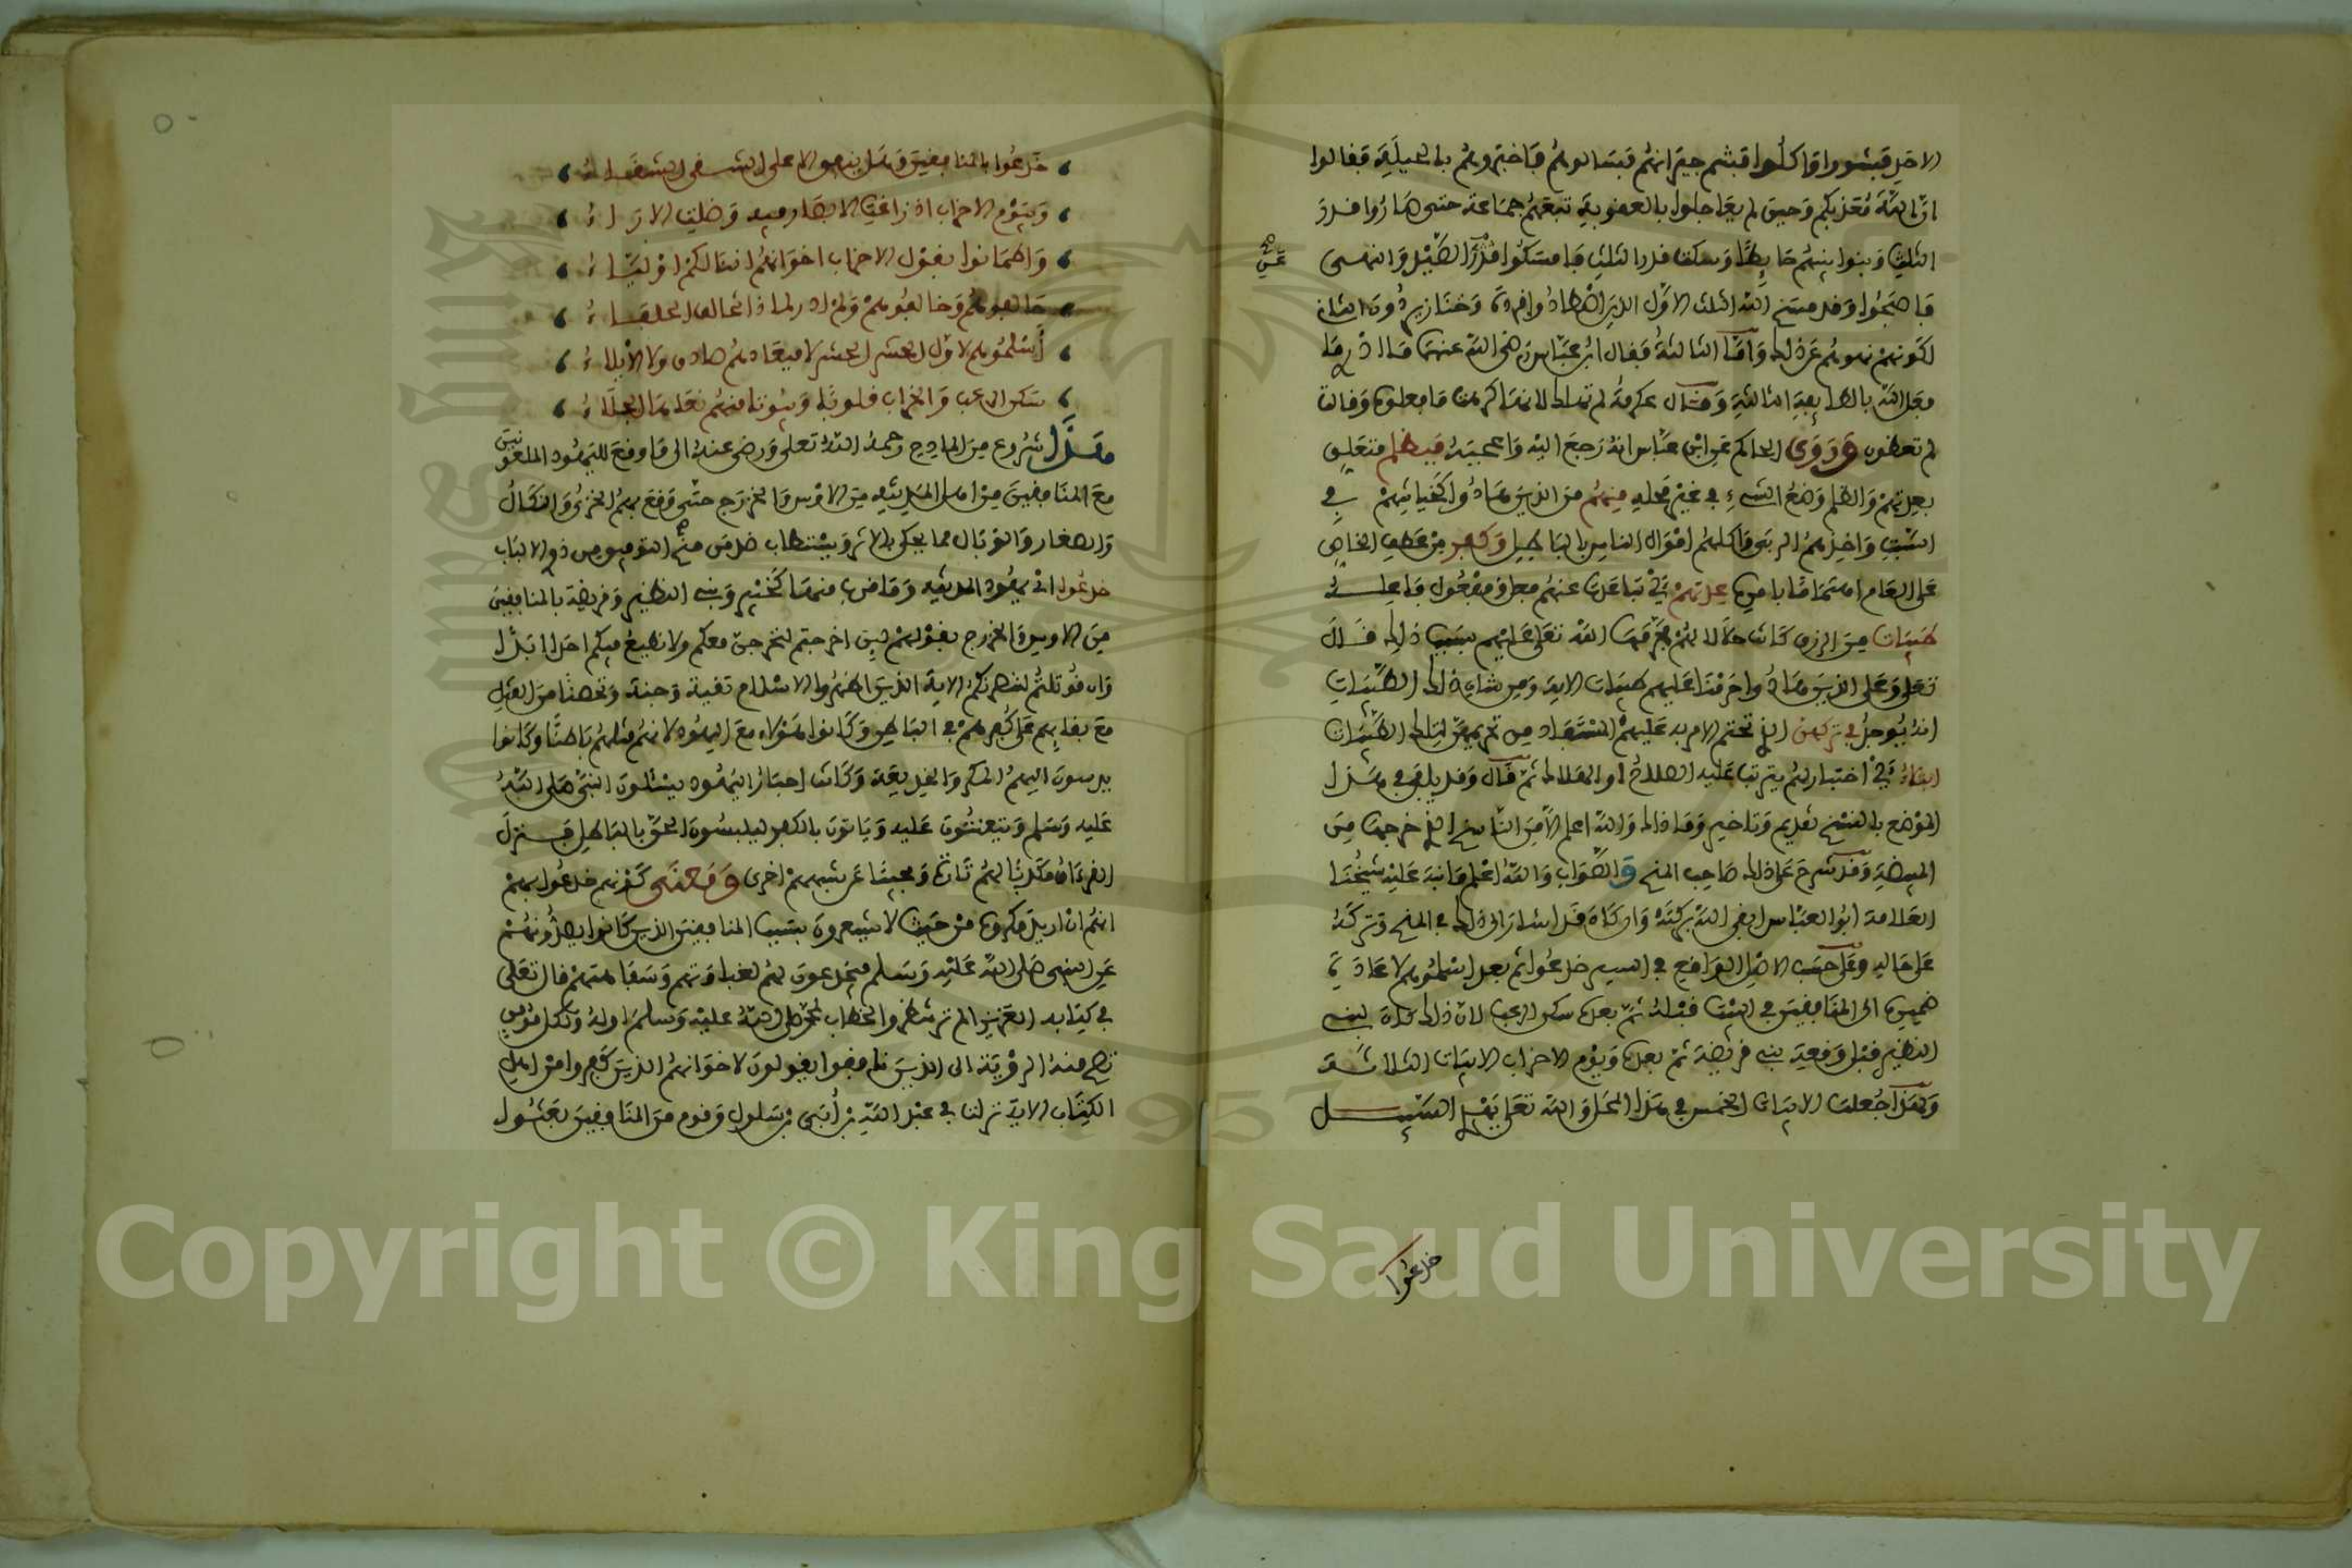 الاحد فبشووا واكلوا فبشم جيرانهم فسالوهم فاخبروهم بالحيلة فقالوا
ان الله معذبكم وحين لم يعاجلوا بالعقوبة تبعهم جماعة حتى صاروا قدر
الثلث وبنوا بينهم حايطا وسكت قدر الثلث فامسكوا الصيد والنهي
عن
فاصبحوا وقد مسخ الله الثلث الاول الذين اصطادوا قردة وخنازير دون الثاني
لكونهم نهوهم عن ذلك واما الثالثة فقال ابن عباس رضي الله عنهما ما ادري ما
فعل الله بالطايفة الثالثة وقال عكرمة لم تهلك لانها كرهت ما فعلوه وقالت
لم تعظون وروى الحاكم عن ابن عباس انه رجع اليه واعجبه فبظلم متعلق
بعدتهم والظلم وضع الشيء في غير محله منهم من الذين هادوا كخيانتهم في
السبت واخذهم الربى واكلهم اموال الناس بالباطل وكفر من عطف الخاص
على العام اهتماما بامره عدتهم اي تباعدت عنهم فعل ومفعول فاعله
طيبات من الرزق كانت حلالا لهم حرمها الله تعلى عليهم بسبب ذلك قال
تعلى وعلى الذين هادوا حرمنا عليهم طيبات الاية ومن شان ذلك الطيبات
انه يوجد في تركهن الذي تحتم الامر به عليهم المستفاد من تحريمهن لتلك الطيبات
ابتلاء اي اختبار لهم يترتب عليه الصلاح او الهلاك ثم قال وقد يلقى في هذا
الموضع بالنسخ تقديم وتاخير وما ذاك والله اعلم الا من الناسخ الذي خرجها من
المبيضة وقد شرح على ذلك صاحب المنح والصواب والله اعلم ما نبه عليه شيخنا
العلامة ابو العباس ابقى الله بركته وان كان قد اشار الى ذلك في المنح وتركه
على حاله وعلى حسب الاصل الواقع في السير خدعوا ثم بعد اسلموهم لاعادة
ضميره الى المنافقين في البيت قبله ثم بعده سكن الرعب لان ذلك كان لبني
النظير قبل وقعة بني قريضة ثم بعده ويوم الاحزاب الابيات الثلاثة
ولهذا جعلت الابيات الخمس في هذا المحل والله تعلى يهدي السبيل
خدعوا
خدعوا بالمنافقين وهل ينفق الا على السفيه الشقاء
ويوم الاحزاب اذ زاغت الابصار فيه وضلت الاراء
واطمانوا بقول الاحزاب اخوانهم اننا لكم اولياء
حالفوهم وخالفوهم ولم ادر لماذا تخالف الحلفاء
أسلموهم لاول الحشر لا ميعادهم صادق ولا الايلاء
سكن الرعب والخراب قلوبا وبيوتا منهم نعاها الجلاء
هذا شروع من المادح رحمه الله تعلى ورضي عنه الى ما وقع لليهود الملعونين
مع المنافقين من اهل المدينة من الاوس والخزرج حتى وقع بهم الخزي والنكال
والصغار والوبال مما يحكى بالاثر ويستطاب خدمن منه القوم من ذوي الالباب
خدعوا اي يهود المدينة وما قرب منها كخيبر وبني النظير وقريضة بالمنافقين
من الاوس والخزرج بقولهم لين اخرجتم لنخرجن معكم ولا نطيع فيكم احدا ابدا
وان قوتلتم لننصرنكم الاية الذين اظهروا الاسلام تقية وجنة وتحصنا من القتل
مع بقايهم على كفرهم في الباطن وكانوا هؤلاء مع اليهود لانهم مثلهم باطنا وكانوا
يدسون اليهم المكر والخديعة وكانت احبار اليهود يسئلون النبي صلى الله
عليه وسلم ويتعنتون عليه وياتون بالكفر ليلبسون الحق بالباطل فينزل
القرءان مكذبا لهم تارة ومجيبا عن شبههم اخرى ومعنى كونهم خدعوا بهم
انهم ان اريد مكروه من حيث لا يشعرون بسبب المنافقين الذين كانوا يصدونهم
عن النبي صلى الله عليه وسلم فيخدعون لهم لغباوتهم وسفاهتهم قال تعلى
في كتابه العزيز الم تر تنظر والخطاب له صلى الله عليه وسلم اوله ولكل مؤمن
تصح منه الرؤية الى الذين نافقوا يقولون لاخوانهم الذين كفروا من اهل
الكتاب الاية نزلت في عبد الله بن أبي بن سلول وقوم من المنافقين بعثوا
Copyright © King Saud University
1957